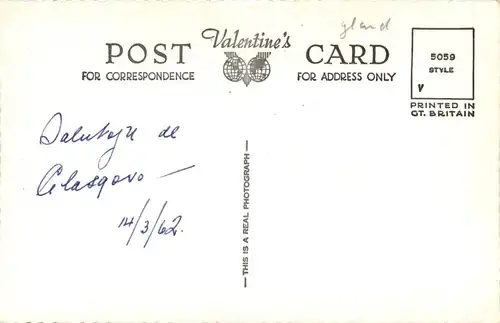 gland
Valentine's
POST CARD
FOR CORRESPONDENCE
FOR ADDRESS ONLY
5059
STYLE
V
PRINTED IN
GT. BRITAIN
de
Glasgow —
14/3/62.
— THIS IS A REAL PHOTOGRAPH —